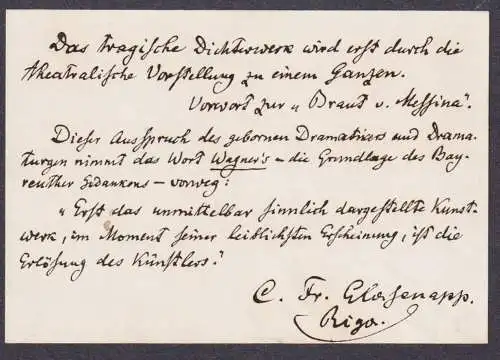 Das tragische Dichterwerk wird erst durch die
theatralische Vorstellung zu einem Ganzen.
Vorwort zur „Braut v. Messina".
Dieser Ausspruch des gebornen Dramatikers und Drama-
turgen nimmt das Wort Wagner's – die Grundlage des Bay-
reuther Gedankens – vorweg:
„Erst das unmittelbar sinnlich dargestellte Kunst-
werk, im Moment seiner leiblichsten Erscheinung, ist die
Erlösung des Künstlers."
C. Fr. Glasenapp.
Riga.